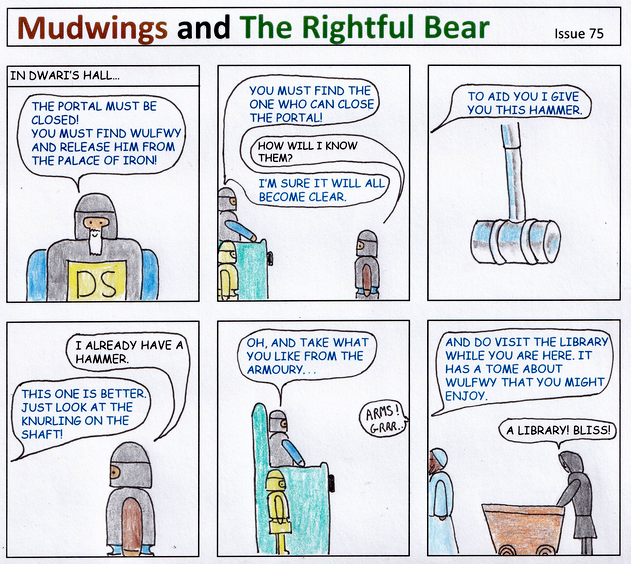 Mudwings and The Rightful Bear
Issue 75
IN DWARI'S HALL...
THE PORTAL MUST BE
CLOSED!
YOU MUST FIND WULFWY
AND RELEASE HIM FROM
THE PALACE OF IRON!
DS
YOU MUST FIND THE
ONE WHO CAN CLOSE
THE PORTAL!
HOW WILL I KNOW
THEM?
I'M SURE IT WILL ALL
BECOME CLEAR.
TO AID YOU I GIVE
YOU THIS HAMMER.
I ALREADY HAVE A
HAMMER.
THIS ONE IS BETTER.
JUST LOOK AT THE
KNURLING ON THE
SHAFT!
OH, AND TAKE WHAT
YOU LIKE FROM THE
ARMOURY...
ARMS!
GRRR..
AND DO VISIT THE LIBRARY
WHILE YOU ARE HERE. IT
HAS A TOME ABOUT
WULFWY THAT YOU MIGHT
ENJOY.
A LIBRARY! BLISS!